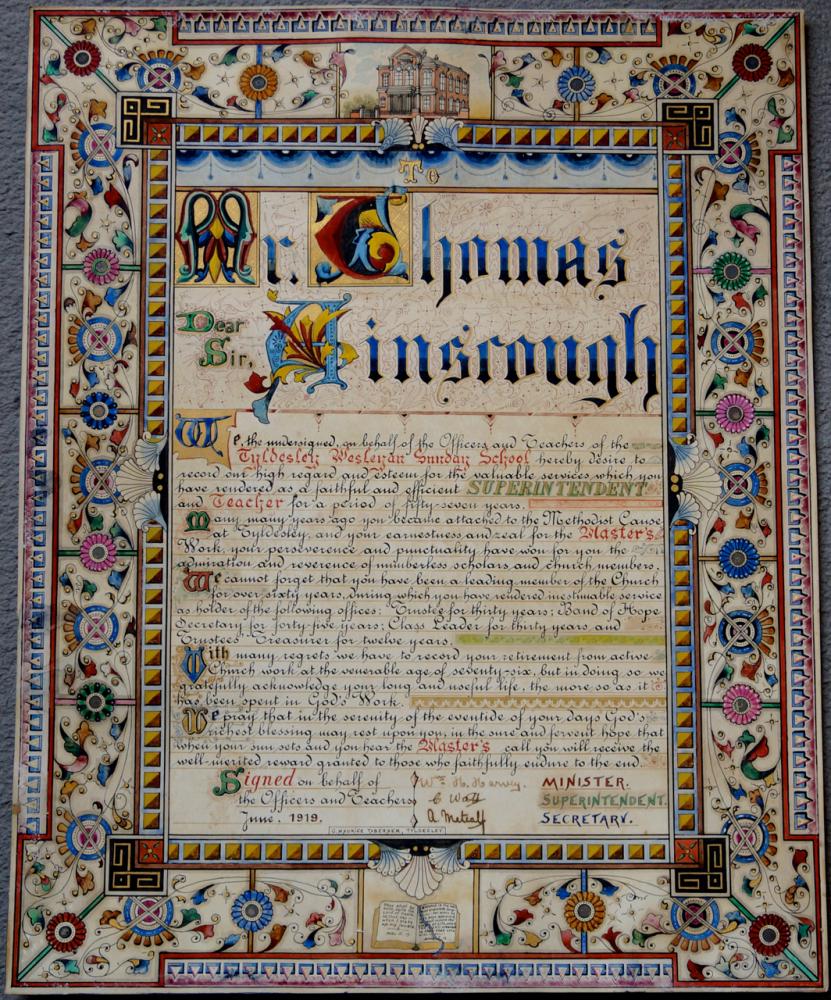 To
Mr. Thomas
Dear Sir, Ainscough
We, the undersigned, on behalf of the Officers and Teachers of the
Tyldesley Wesleyan Sunday School hereby desire to
record our high regard and esteem for the valuable services which you
have rendered as a faithful and efficient SUPERINTENDENT
and Teacher for a period of fifty-seven years.
Many many years ago you became attached to the Methodist Cause
at Tyldesley, and your earnestness and zeal for the Master's
Work, your perseverence and punctuality have won for you the
admiration and reverence of numberless scholars and church members.
We cannot forget that you have been a leading member of the Church
for over sixty years, during which you have rendered inestimable service
as holder of the following offices: Trustee for thirty years; Band of Hope
Secretary for forty-five years; Class Leader for thirty years and
Trustees' Treasurer for twelve years.
With many regrets we have to record your retirement from active
Church work at the venerable age of seventy-six, but in doing so we
gratefully acknowledge your long and useful life, the more so as it
has been spent in God's Work.
We pray that in the serenity of the eventide of your days God's
richest blessing may rest upon you, in the sure and fervent hope that
when your sun sets and you hear the Master's call you will receive the
well-merited reward granted to those who faithfully endure to the end.
Signed on behalf of Wm. H. Harvey. MINISTER.
the Officers and Teachers C Watt SUPERINTENDENT.
June, 1919. A. Metcalf SECRETARY.
MAURICE TYLDESLEY